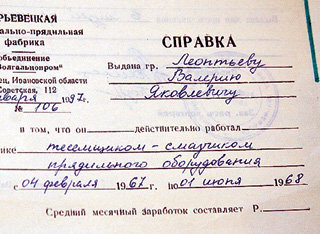 РЬЕВЕЦКАЯ
ально-прядильная
фабрика
объединение
Волгальнопром"
ец, Ивановской области
Советская, 112
января 1987 г.
№ 106
СПРАВКА
Выдана гр. Леонтьеву
Валерию
Яковлевичу
в том, что он действительно работал
ике тесемщиком-смазчиком
прядильного оборудования
с 04 февраля 1967 г. по 01 июня 1968
Средний месячный заработок составляет Р.